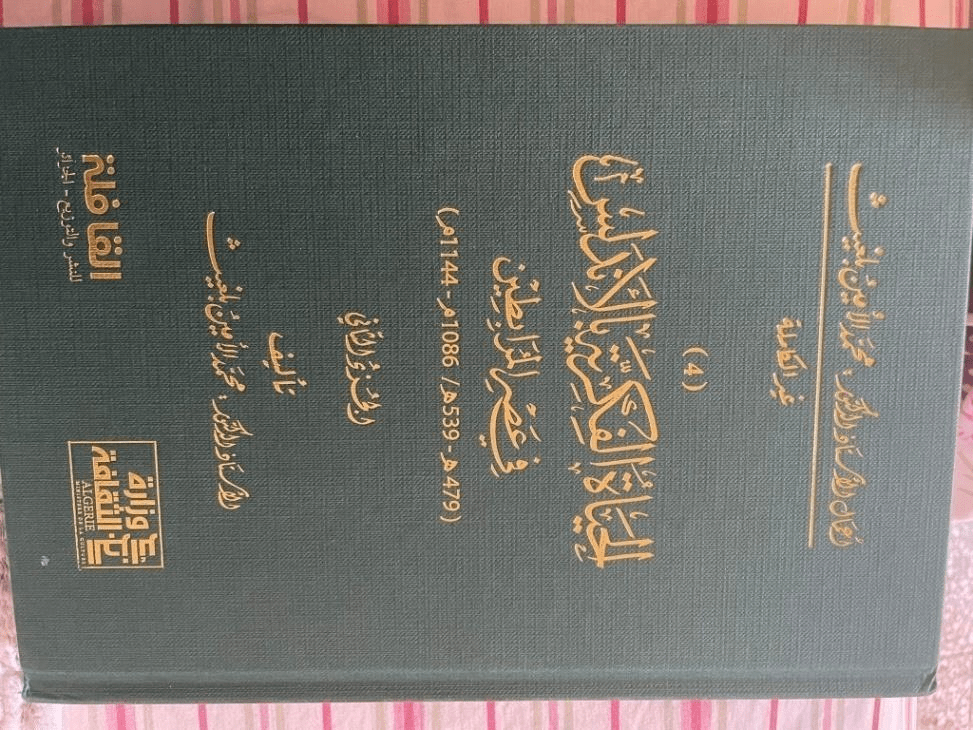 أعمال الأستاذ الدكتور: محمد الأمين بلغيث
غير الكاملة
(4)
الحَيَاةُ الفِكْرِيَّةُ بِالأَنْدَلُسِ
فِي عَصْرِ المُرَابِطِين
(479هـ - 539هـ/ 1086م - 1144م)
الجُزءُ الثَّاني
تأليف
الأستاذ الدكتور: محمد الأمين بلغيث
وزارة الثقافة
ALGERIE
MINISTERE DE LA CULTURE
القافلة
للنشر والتوزيع - الجزائر